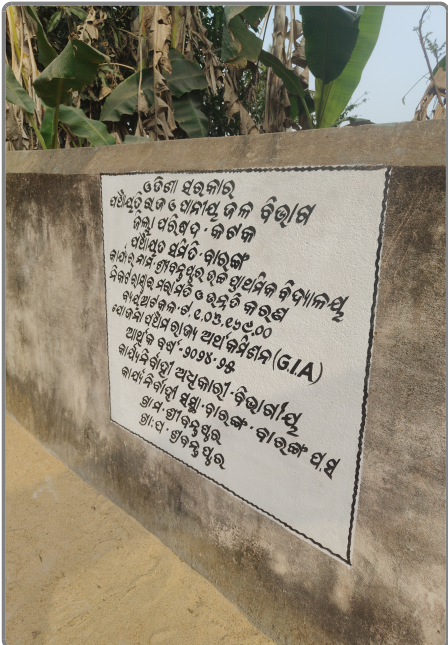 ଓଡିଶା ସରକାର
ପଞ୍ଚାୟତିରାଜ ଓ ପାନୀୟ ଜଳ ବିଭାଗ
ଜିଲ୍ଲା ପରିଷଦ - କଟକ
ପଞ୍ଚାୟତ ସମିତି - ବାରଙ୍ଗ
କାର୍ଯ୍ୟର ନାମ - ଶ୍ରୀବନ୍ତପୁର ଉଚ୍ଚ ପ୍ରାଥମିକ ବିଦ୍ୟାଳୟ
ନିକଟ ରାସ୍ତାର ମରାମତି ଓ ଉନ୍ନତି କରଣ
ବ୍ୟୟ ଅଟକଳ - ଟ
ଯୋଜନା ପଞ୍ଚମ ରାଜ୍ୟ ଅର୍ଥ କମିଶନ (G.I.A)
ଆର୍ଥିକ ବର୍ଷ - ୨୦୨୪-୨୫
କାର୍ଯ୍ୟନିର୍ବାହୀ ଅଧିକାରୀ - ବିଭାଗୀୟ
କାର୍ଯ୍ୟନିର୍ବାହୀ ସଂସ୍ଥା - ବାରଙ୍ଗ - ବାରଙ୍ଗ ପ.ସ
ଗ୍ରା.ମ - ଶ୍ରୀବନ୍ତପୁର
ଗ୍ରା.ପ - ଶ୍ରୀବନ୍ତପୁର